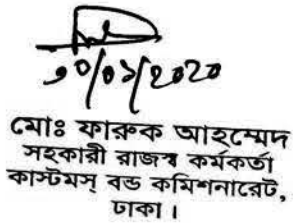 ১০/০১/২০২০
মোঃ ফারুক আহম্মেদ
সহকারী রাজস্ব কর্মকর্তা
কাস্টমস্ বন্ড কমিশনারেট,
ঢাকা।